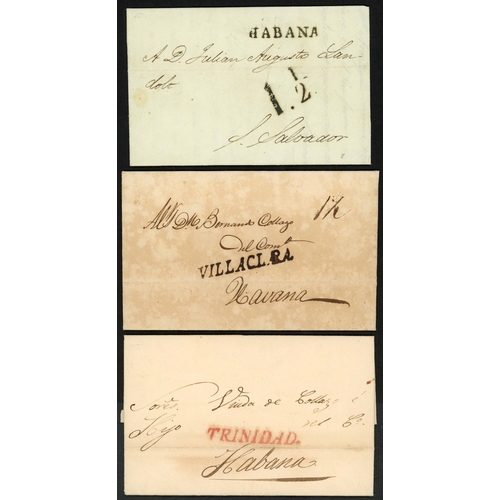 HABANA
A D. Julian Augusto Lan-
dolt
1 1/2
S. Salvador
D. Bernardo Collazo
1 1/2
del Comº
VILLACLARA
Havana
Sores. Viuda de Collazo é
Hijo del Cº.
TRINIDAD.
Habana